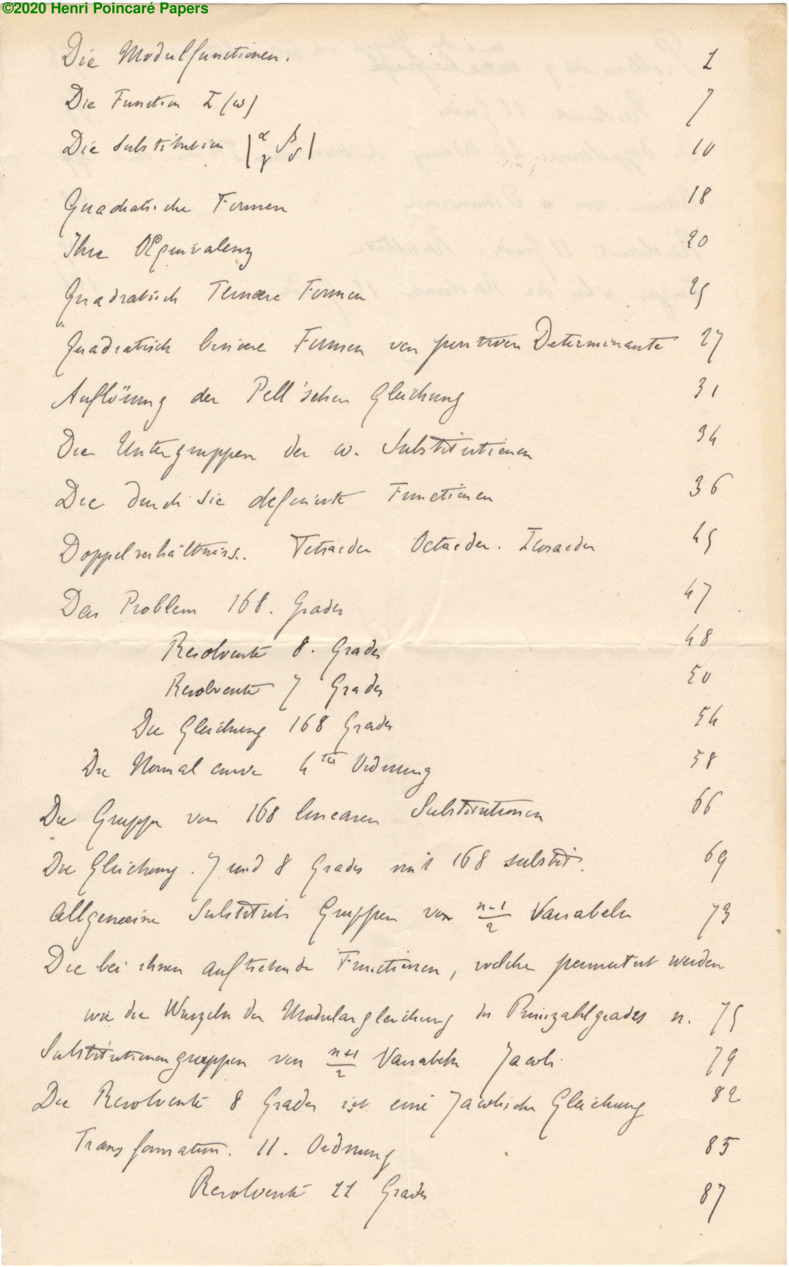 ©2020 Henri Poincaré Papers
Die Modulfunctionen. 1
Die Function I(ω) 7
Die Substitution |α β γ δ| 10
Quadratische Formen 18
Ihre Æquivalenz 20
Quadratisch Ternäre Formen 25
Quadratisch binäre Formen von positiven Determinante 27
Auflösung der Pell'schen Gleichung 31
Die Untergruppen der ω. Substitutionen 34
Die durch sie definirte Functionen 36
Doppelverhältniss. Tetraeder Octaeder. Icosaeder 45
Das Problem 168. Grades 47
Resolvente 8. Grades 48
Resolvente 7 Grades 50
Die Gleichung 168 Grades 54
Die Normalcurve 4ter Ordnung 58
Die Gruppe von 168 linearen Substitutionen 66
Die Gleichung. 7 und 8 Grades mit 168 substit. 69
Allgemeine Substituts Gruppen von n-1/2 Variabeln 73
Die bei ihnen auftretende Functionen, welche permutirt werden
wie die Wurzeln der Modulargleichung des Primzahlgrades n. 75
Substitutionengruppen von n+1/2 Variabeln Jacobi. 79
Die Resolvente 8 Grades ist eine Jacobische Gleichung 82
Transformation. 11. Ordnung 85
Resolvente 11 Grades 87